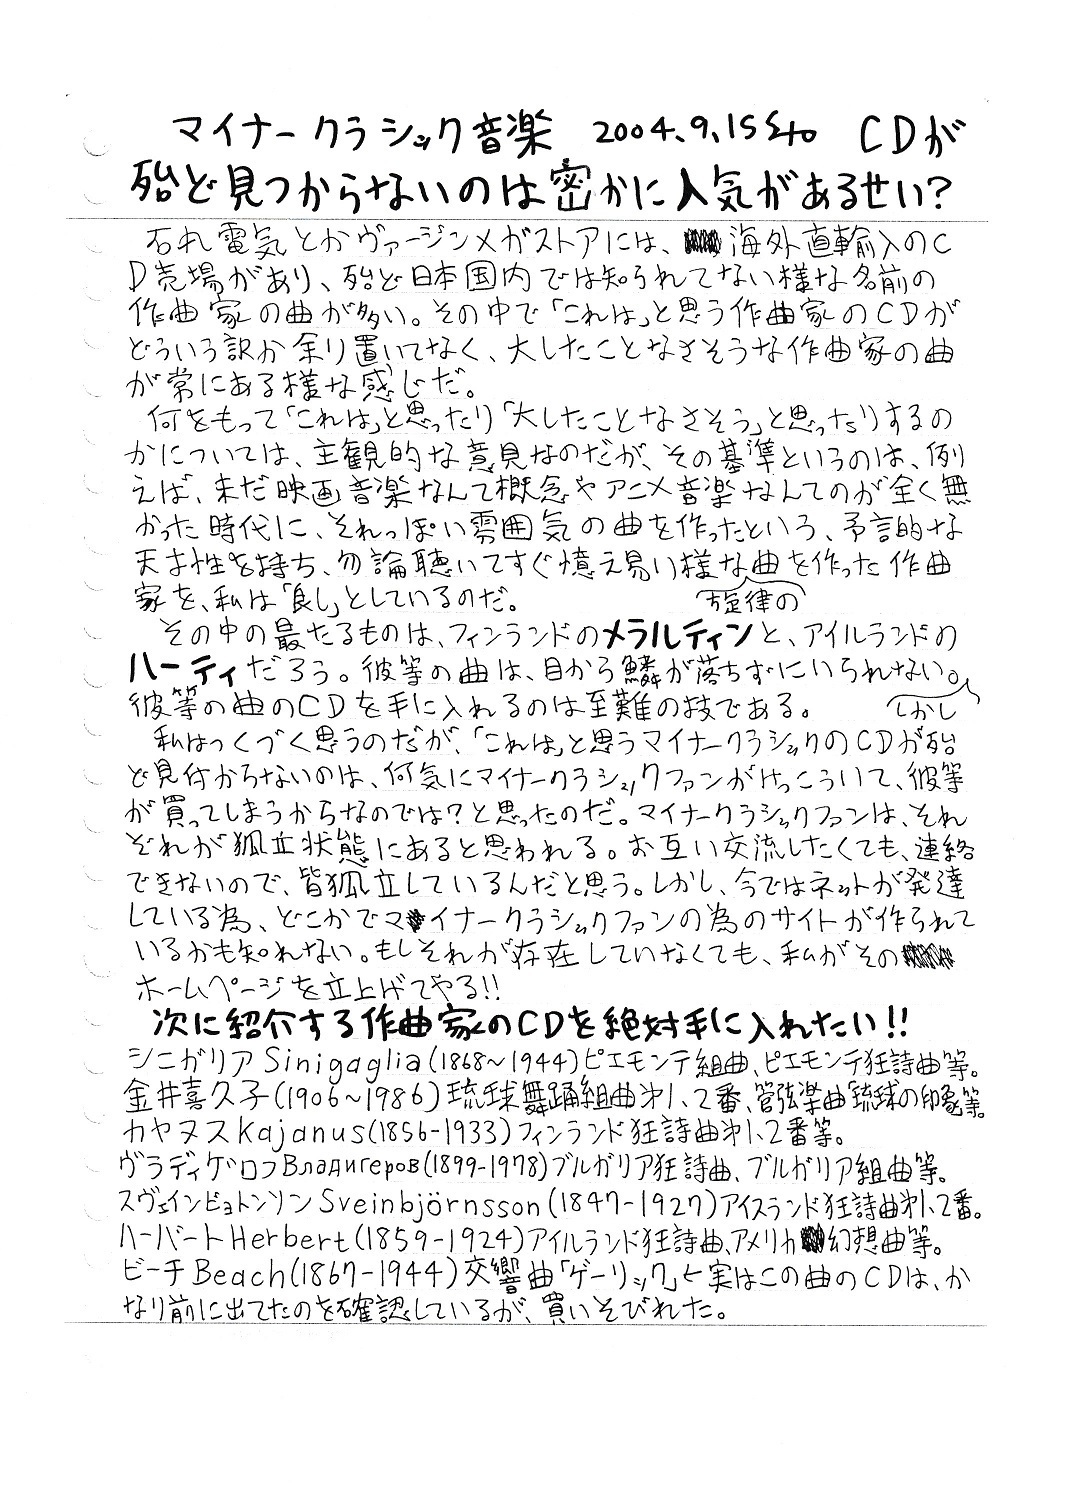 マイナークラシック音楽 2004.9.15 CDが
殆ど見つからないのは密かに人気があるせい?
石丸電気とかヴァージンメガストアには、海外直輸入のC
D売場があり、殆ど日本国内では知られてない様な名前の
作曲家の曲が多い。その中で「これは」と思う作曲家のCDが
どういう訳か余り置いてなく、大したことなさそうな作曲家の曲
が常にある様な感じだ。
何をもって「これは」と思ったり「大したことなさそう」と思ったりするの
かについては、主観的な意見なのだが、その基準というのは、例
えば、未だ映画音楽なんて概念やアニメ音楽なんてのが全く無
かった時代に、それっぽい雰囲気の曲を作ったという、予言的な
天才性を持ち、勿論聴いてすぐ憶え易い様な曲を作った作曲
家を、私は「良し」としているのだ。 旋律の
その中の最たるものは、フィンランドのメラルティンと、アイルランドの
ハーティだろう。彼等の曲は、目から鱗が落ちずにいられない。
彼等の曲のCDを手に入れるのは至難の技である。 しかし
私はつくづく思うのだが、「これは」と思うマイナークラシックのCDが殆
ど見付からないのは、何気にマイナークラシックファンがけっこういて、彼等
が買ってしまうからなのでは?と思ったのだ。マイナークラシックファンは、それ
ぞれが狐立状態にあると思われる。お互い交流したくても、連絡
できないので、皆狐立しているんだと思う。しかし、今ではネットが発達
している為、どこかでマイナークラシックファンの為のサイトが作られて
いるかも知れない。もしそれが存在していなくても、私がその
ホームページを立上げてやる!!
次に紹介する作曲家のCDを絶対手に入れたい!!
シニガリアSinigaglia(1868~1944)ピエモンテ組曲、ピエモンテ狂詩曲等。
金井喜久子(1906~1986)琉球舞踊組曲第1、2番、管弦楽曲琉球の印象等。
カヤヌスKajanus(1856-1933)フィンランド狂詩曲第1、2番等。
ヴラディゲロフВладигеров(1899-1978)ブルガリア狂詩曲、ブルガリア組曲等。
スヴェインビョトンソンSveinbjörnsson(1847-1927)アイスランド狂詩曲第1、2番。
ハーバートHerbert(1859-1924)アイルランド狂詩曲、アメリカ幻想曲等。
ビーチBeach(1867-1944)交響曲「ゲーリック」←実はこの曲のCDは、か
なり前に出てたのを確認しているが、買いそびれた。